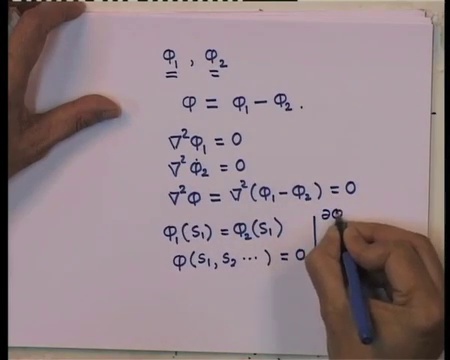 φ₁ , φ₂
φ = φ₁ − φ₂ .
∇²φ₁ = 0
∇²φ₂ = 0
∇²φ = ∇²(φ₁ − φ₂) = 0
φ₁(S₁) = φ₂(S₁) | ∂φ
φ(S₁, S₂ ⋯) = 0